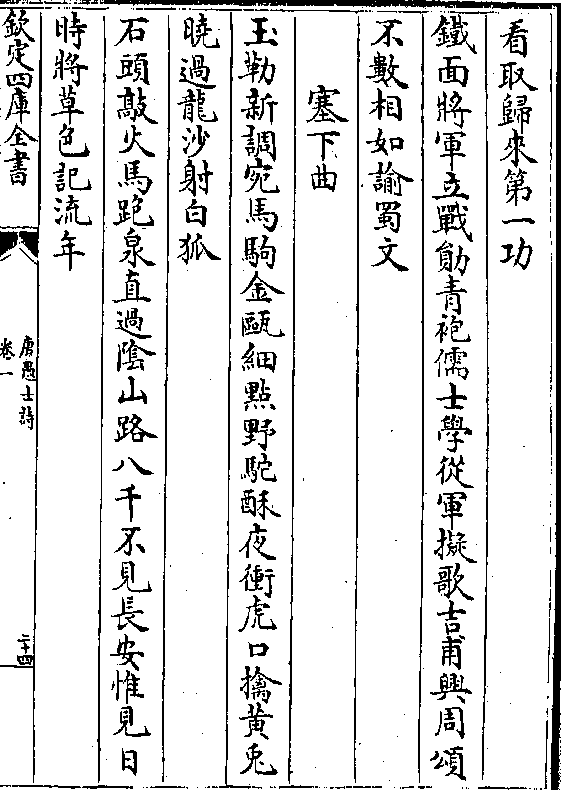 看取歸來第一功
鐵面將軍立戰勛青袍儒士學從軍擬歌吉甫興周頌
不數相如諭蜀文
塞下曲
玉勒新調宛馬駒金甌細點野駝酥夜衝虎口擒黄兎
曉過龍沙射白狐
石頭敲火馬跑泉直過陰山路八千不見長安惟見日
時將草色記流年
欽定四庫全書
唐愚士詩
卷一
二十四